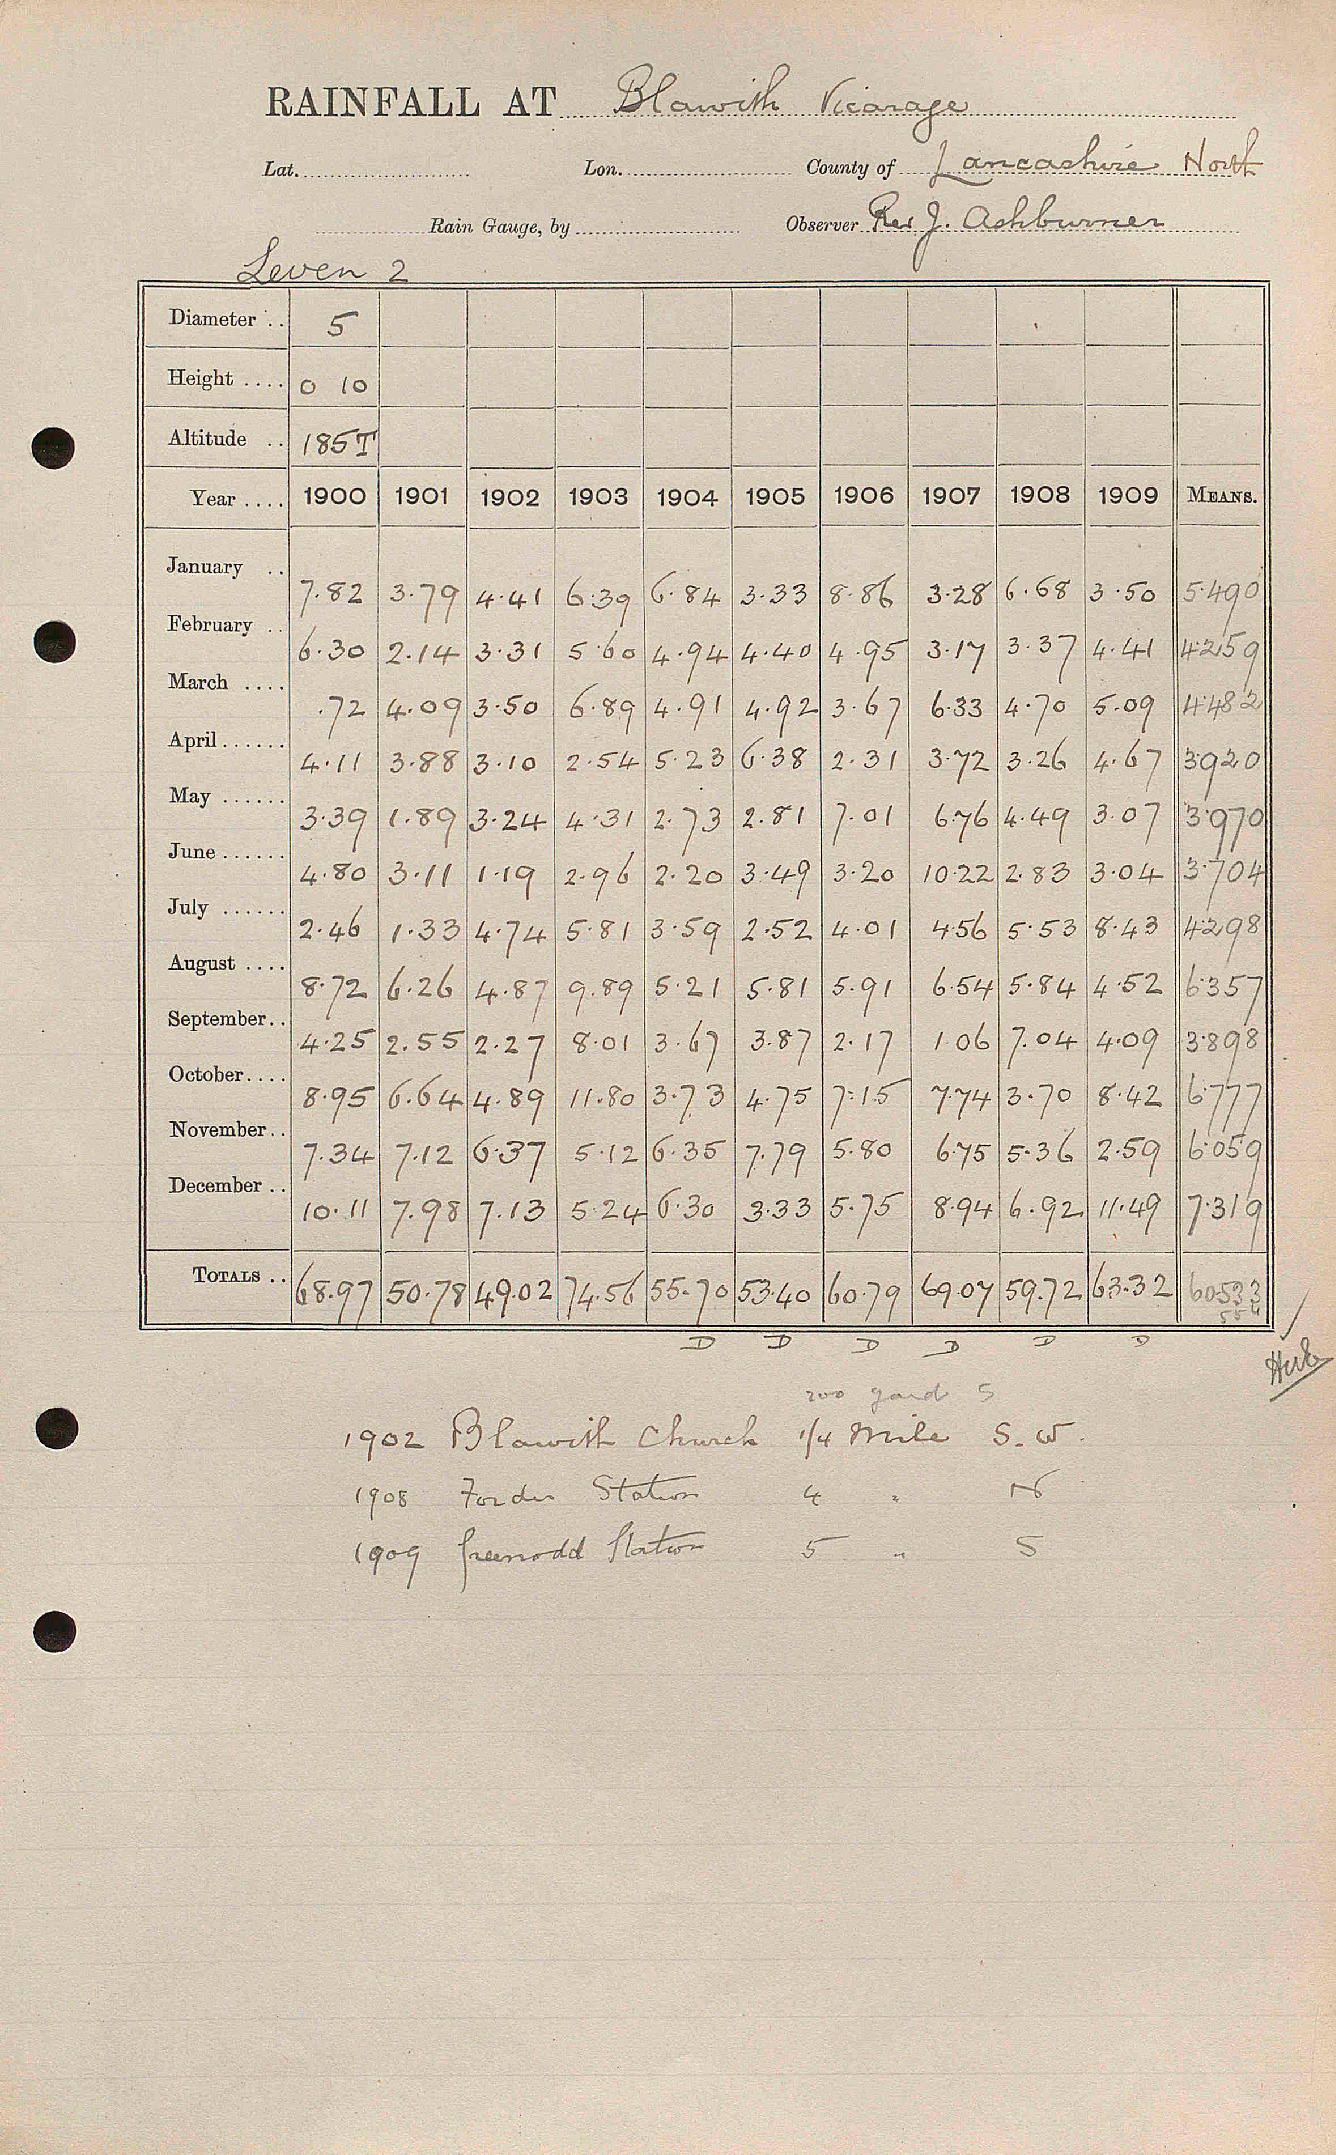 RAINFALL AT Blawith Vicarage
Lat. Lon. County of Lancashire North
Rain Gauge, by Observer Rev J. Ashburner
Leven 2
Diameter .. 5
Height .... 0 10
Altitude .. 185T
Year .... 1900 1901 1902 1903 1904 1905 1906 1907 1908 1909 MEANS.
January .. 7.82 3.79 4.41 6.39 6.84 3.33 8.86 3.28 6.68 3.50 5.490
February .. 6.30 2.14 3.31 5.60 4.94 4.40 4.95 3.17 3.37 4.41 4.259
March .... .72 4.09 3.50 6.89 4.91 4.92 3.67 6.33 4.70 5.09 4.482
April ...... 4.11 3.88 3.10 2.54 5.23 6.38 2.31 3.72 3.26 4.67 3.920
May ...... 3.39 1.89 3.24 4.31 2.73 2.81 7.01 6.76 4.49 3.07 3.970
June ...... 4.80 3.11 1.19 2.96 2.20 3.49 3.20 10.22 2.83 3.04 3.704
July ...... 2.46 1.33 4.74 5.81 3.59 2.52 4.01 4.56 5.53 8.43 4.298
August .... 8.72 6.26 4.87 9.89 5.21 5.81 5.91 6.54 5.84 4.52 6.357
September .. 4.25 2.55 2.27 8.01 3.67 3.87 2.17 1.06 7.04 4.09 3.898
October .... 8.95 6.64 4.89 11.80 3.73 4.75 7.15 7.74 3.70 8.42 6.777
November .. 7.34 7.12 6.37 5.12 6.35 7.79 5.80 6.75 5.36 2.59 6.059
December .. 10.11 7.98 7.13 5.24 6.30 3.33 5.75 8.94 6.92 11.49 7.319
TOTALS .. 68.97 50.78 49.02 74.56 55.70 53.40 60.79 69.07 59.72 63.32 60.533
D D D D D D
200 yard S
1902 Blawith Church 1/4 Mile S.W.
1908 Station 4 " N
1909 Greenodd Station 5 " S